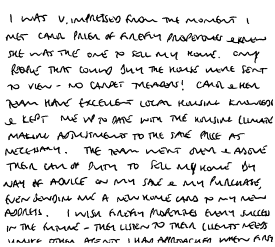 I WAS V. IMPRESSED FROM THE MOMENT I
MET CAROL PRIER OF FIREFLY PROPERTIES & KNEW
SHE WAS THE ONE TO SELL MY HOME. ONLY
PEOPLE THAT COULD BUY THE HOUSE WERE SENT
TO VIEW - NO CARPET TREADERS! CAROL & HER
TEAM HAVE EXCELLENT LOCAL HOUSING KNOWLEDGE
& KEPT ME UP TO DATE WITH THE HOUSING CLIMATE
MAKING ADJUSTMENTS TO THE SALE PRICE AS
NECESSARY. THE TEAM WENT OVER & ABOVE
THEIR CALL OF DUTY TO SELL MY HOME BY
WAY OF ADVICE ON MY SALE & MY PURCHASE,
EVEN SENDING ME A NEW HOME CARD TO MY NEW
ADDRESS. I WISH FIREFLY PROPERTIES EVERY SUCCESS
IN THE FUTURE - THEY LISTEN TO THEIR CLIENTS NEEDS
UNLIKE OTHER AGENTS I HAD APPROACHED WHEN